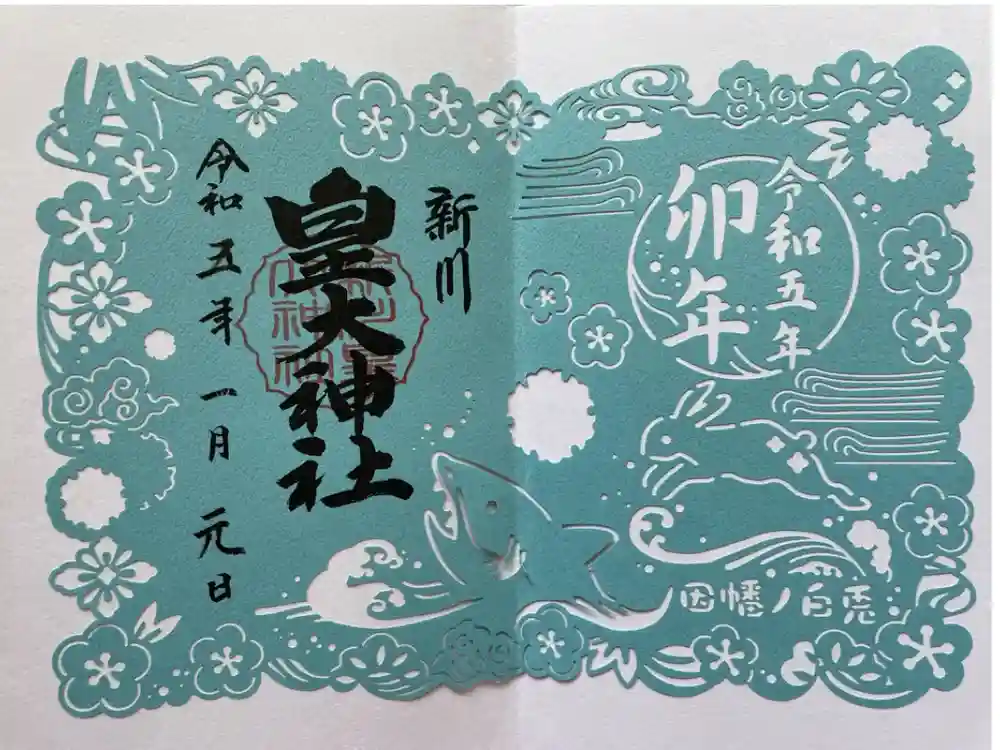 令和五年
卯年
因幡ノ白兎
新川
皇大神社
令和五年一月元日